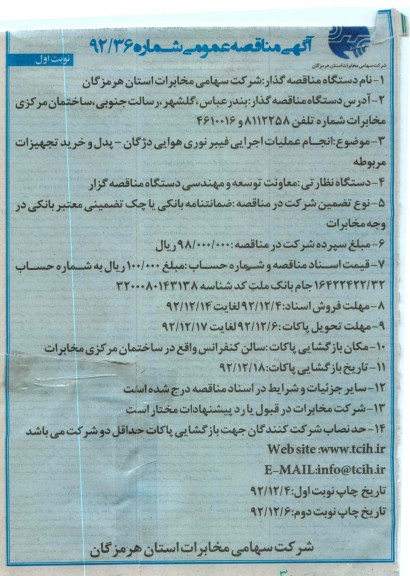 آگهی مناقصه عمومی شماره ۹۲/۳۶
نوبت اول
شرکت سهامی مخابرات استان هرمزگان
۱-نام دستگاه مناقصه گذار:شرکت سهامی مخابرات استان هرمزگان
۲-آدرس دستگاه مناقصه گذار:بندرعباس،گلشهر،رسالت جنوبی،ساختمان مرکزی
مخابرات شماره تلفن ۸۱۱۲۲۵۸ و ۴۶۱۰۰۱۶
۳-موضوع:انجام عملیات اجرایی فیبر نوری هوایی دژگان - پدل و خرید تجهیزات
مربوطه
۴-دستگاه نظارتی:معاونت توسعه و مهندسی دستگاه مناقصه گزار
۵-نوع تضمین شرکت در مناقصه :ضمانتنامه بانکی یا چک تضمینی معتبر بانکی در
وجه مخابرات
۶-مبلغ سپرده شرکت در مناقصه :۹۸/۰۰۰/۰۰۰ ریال
۷-قیمت اسناد مناقصه و شماره حساب :مبلغ ۱۰۰/۰۰۰ ریال به شماره حساب
۱۶۴۲۲۴۲۲/۳۲ جام بانک ملت کد شناسه ۳۲۰۰۰۸۰۱۴۳۱۳۸
۸-مهلت فروش اسناد:۹۲/۱۲/۴ لغایت ۹۲/۱۲/۱۴
۹-مهلت تحویل پاکات :۹۲/۱۲/۶ لغایت ۹۲/۱۲/۱۷
۱۰-مکان بازگشایی پاکات:سالن کنفرانس واقع در ساختمان مرکزی مخابرات
۱۱-تاریخ بازگشایی پاکات:۹۲/۱۲/۱۸
۱۲-سایر جزئیات و شرایط در اسناد مناقصه درج شده است
۱۳-شرکت مخابرات در قبول یا رد پیشنهادات مختار است
۱۴-حد نصاب شرکت کنندگان جهت بازگشایی پاکات حداقل دو شرکت می باشد
Web site :www.tcih.ir
E-MAIL:info@tcih.ir
تاریخ چاپ نوبت اول:۹۲/۱۲/۴
تاریخ چاپ نوبت دوم:۹۲/۱۲/۶
شرکت سهامی مخابرات استان هرمزگان